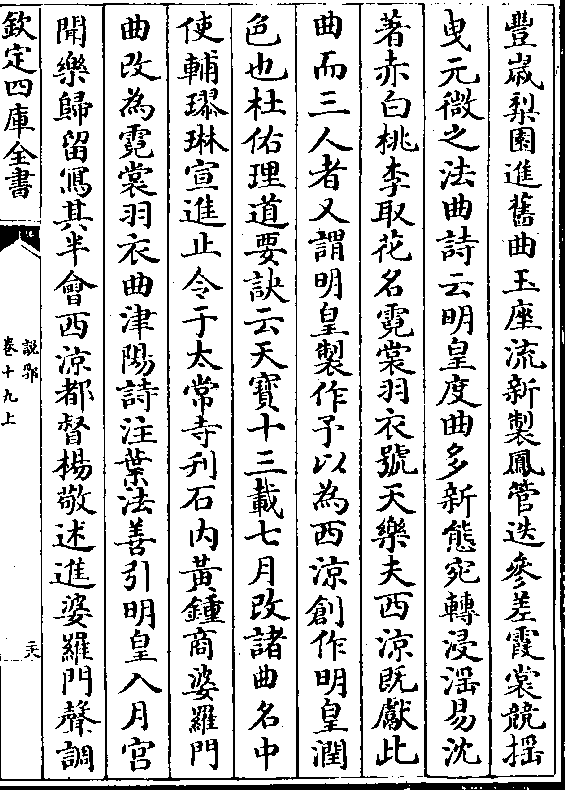 豐嵗梨園進舊曲玉座流新製鳳管迭參差霞裳競揺
曳元微之法曲詩云明皇度曲多新態宛轉浸淫易沈
著赤白桃李取花名霓裳羽衣號天樂夫西涼既獻此
曲而三人者又謂明皇製作予以為西涼創作明皇潤
色也杜佑理道要訣云天寳十三載七月改諸曲名中
使輔璆琳宣進止令于太常寺刋石内黃鍾商婆羅門
曲改為霓裳羽衣曲津陽詩注葉法善引明皇入月宮
聞樂歸留寫其半會西涼都督楊敬述進婆羅門聲調
欽定四庫全書
説郛
卷十九上